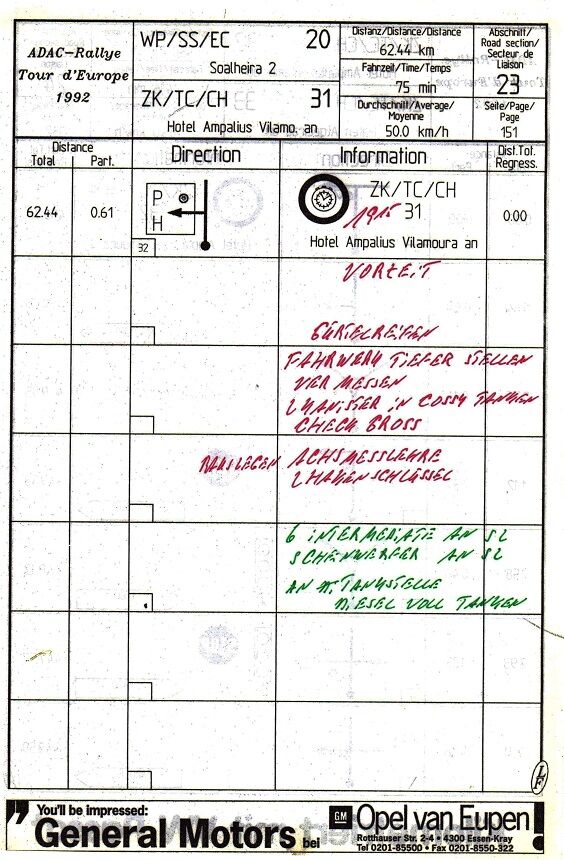 ADAC-Rallye
Tour d'Europe
1992
WP/SS/EC 20
Soalheira 2
ZK/TC/CH 31
Hotel Ampalius Vilamo. an
Distanz/Distance/Distance
62.44 km
Fahrzeit/Time/Temps
75 min
Durchschnitt/Average/
Moyenne
50.0 km/h
Abschnitt/
Road section/
Secteur de
Liaison
23
Seite/Page/
Page
151
Distance
Total Part.
Direction
Information
Dist.Tot.
Regress.
62.44 0.61
P
H
32
ZK/TC/CH
31
1915
Hotel Ampalius Vilamoura an
0.00
VORZEIT
GÜRTELREIFEN
FAHRWERK TIEFER STELLEN
VERMESSEN
2 KANISTER IN COSSY TANKEN
CHECK GROSS
RAUSLEGEN ACHSMESSLEHRE
2 HAKENSCHLÜSSEL
6 INTERMEDIATE AN SL
SCHEINWERFER AN SL
AN TANKSTELLE
DIESEL VOLL TANKEN
You'll be impressed:
General Motors bei
GM Opel van Eupen!
Rotthauser Str. 2-4 • 4300 Essen-Kray
Tel 0201-85500 • Fax 0201-8550-322